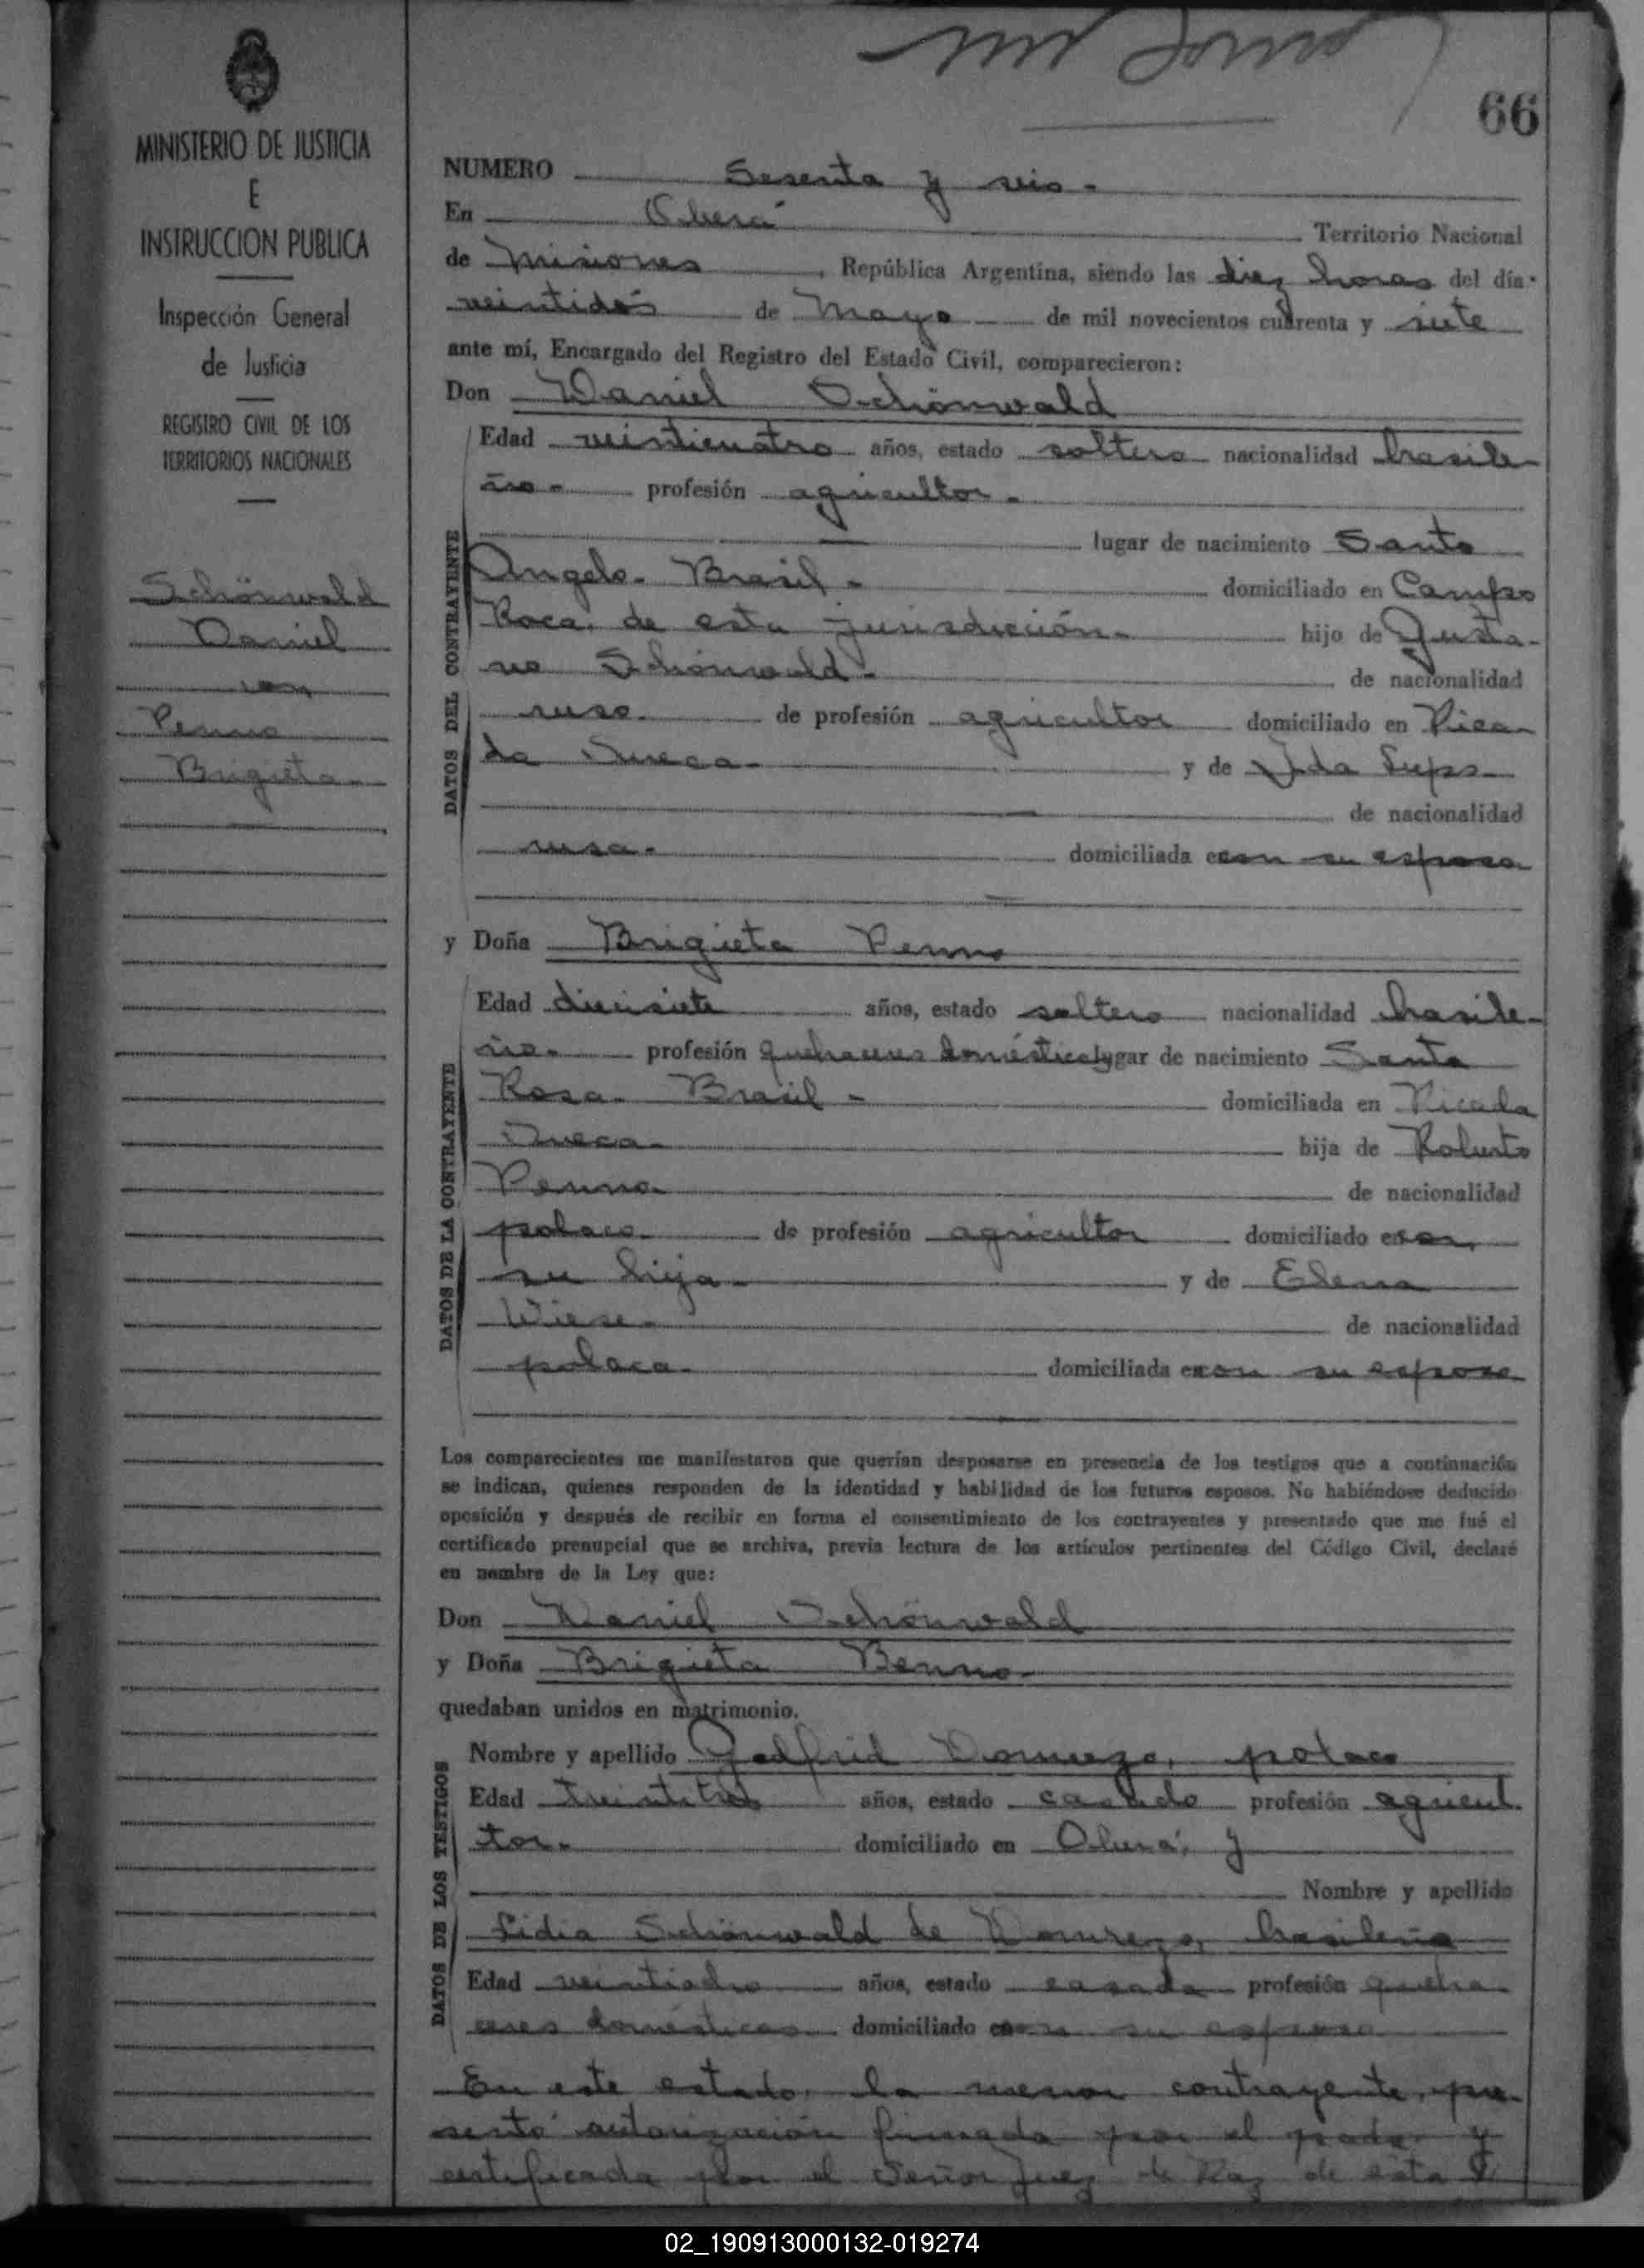 66
MINISTERIO DE JUSTICIA
E
INSTRUCCION PUBLICA
Inspección General
de Justicia
REGISTRO CIVIL DE LOS
TERRITORIOS NACIONALES
Schönwald
Daniel
con
Penno
Brigieta
NUMERO Sesenta y seis-
En Oberá Territorio Nacional
de Misiones, República Argentina, siendo las diez horas del día
veintidós de Mayo de mil novecientos cuarenta y siete
ante mí, Encargado del Registro del Estado Civil, comparecieron:
Don Daniel Schönwald
DATOS DEL CONTRAYENTE
Edad veinticuatro años, estado soltero nacionalidad brasile-
ño- profesión agricultor-
lugar de nacimiento Santo
Angelo- Brasil- domiciliado en Campo
Roca, de esta jurisdicción- hijo de Gusta-
vo Schönwald- de nacionalidad
ruso- de profesión agricultor domiciliado en Pica-
da Sueca- y de Ida Lups-
de nacionalidad
rusa- domiciliada con su esposo
y Doña Brigieta Penno
DATOS DE LA CONTRAYENTE
Edad diecisiete años, estado soltera nacionalidad brasile-
ña- profesión quehaceres domésticos lugar de nacimiento Santa
Rosa- Brasil- domiciliada en Picada
Sueca- hija de Roberto
Penno de nacionalidad
polaco- de profesión agricultor domiciliado con
su hija- y de Elena
Wiese- de nacionalidad
polaca- domiciliada con su esposo
Los comparecientes me manifestaron que querían desposarse en presencia de los testigos que a continuación
se indican, quienes responden de la identidad y habilidad de los futuros esposos. No habiéndose deducido
oposición y después de recibir en forma el consentimiento de los contrayentes y presentado que me fué el
certificado prenupcial que se archiva, previa lectura de los artículos pertinentes del Código Civil, declaré
en nombre de la Ley que:
Don Daniel Schönwald
y Doña Brigieta Penno-
quedaban unidos en matrimonio.
DATOS DE LOS TESTIGOS
Nombre y apellido Godfrid polaco
Edad años, estado casado profesión agricul
tor- domiciliado en Oberá, y
Nombre y apellido
Lidia Schönwald de brasileña
Edad veintiocho años, estado casada profesión queha-
ceres domésticos domiciliado con su esposo
En este estado, la menor contrayente, pre-
sentó autorización firmada por el padre y
certificada por el Señor Juez de Paz de esta
02_190913000132-019274